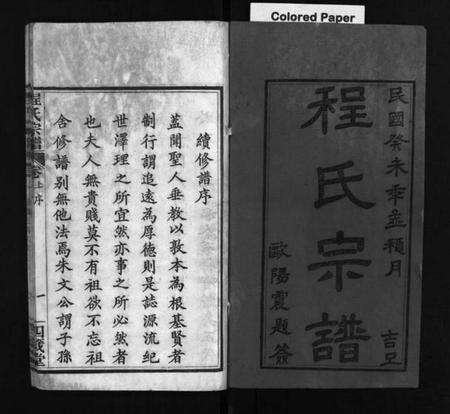 Colored Paper
民國癸未年孟穐月 吉旦
程氏宗譜
歐陽霞題簽
續修譜序
蓋聞聖人垂教以敦本為根基賢者
制行謂追遠為厚德則是誌源流紀
世澤理之所宜然亦事之所必然者
也夫人無貴賤莫不有祖欲不忘祖
舍修譜別無他法焉朱文公謂子孫
程氏宗譜 卷上 序 一